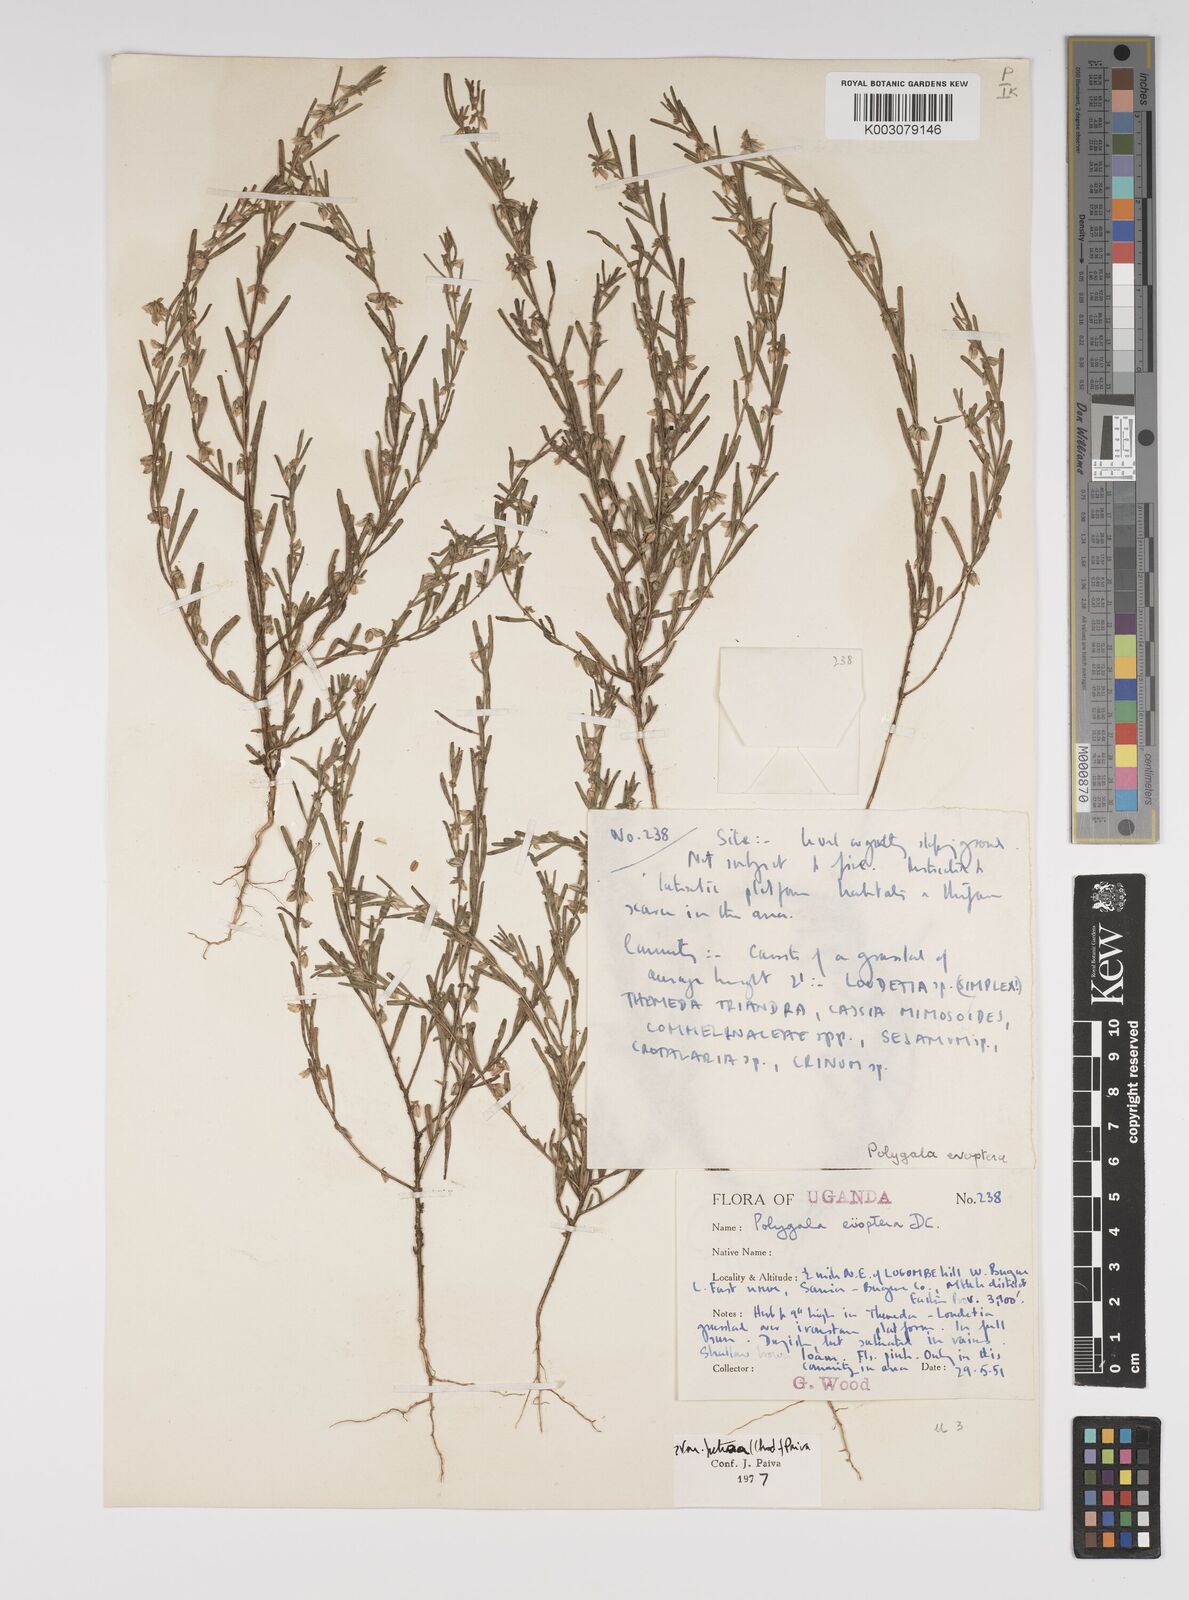 ROYAL BOTANIC GARDENS KEW
K003079146
P
IK
238
No. 238 Site :- level or gently sloping ground.
Not subject to fire. Restricted to
lateritic platform habitats & therefore
scarce in the area.
Community :- Consists of a grassland of
average height 2' :- LOUDETIA sp. (SIMPLEX?)
THEMEDA TRIANDRA, CASSIA MIMOSOIDES,
COMMELINACEAE spp., SESAMUM sp.,
CROTALARIA sp., CRINUM sp.
Polygala erioptera
FLORA OF UGANDA No. 238
Name : Polygala erioptera DC.
Native Name :
Locality & Altitude : ½ mile N.E. of LUGOMBE hill W. Bugwe
L. Forest reserve, Samia - Bugwe Co., district
Eastern Prov. 3,900'.
Notes : Herb to 9" high in Themeda - Loudetia
grassland over ironstone platform. In full
sun. Dryish but saturated in rains.
Shallow brown loam. Fls. pink. Only in this
Collector : community in area Date : 29.5.51
G. Wood
(Chod.) Paiva
Conf. J. Paiva
1977
3
inches
centimetres
Density
Don Williams
M000870
Royal Botanic Gardens
Kew
0 1 2 3 4 5 6 7 8 9 10
cm
copyright reserved